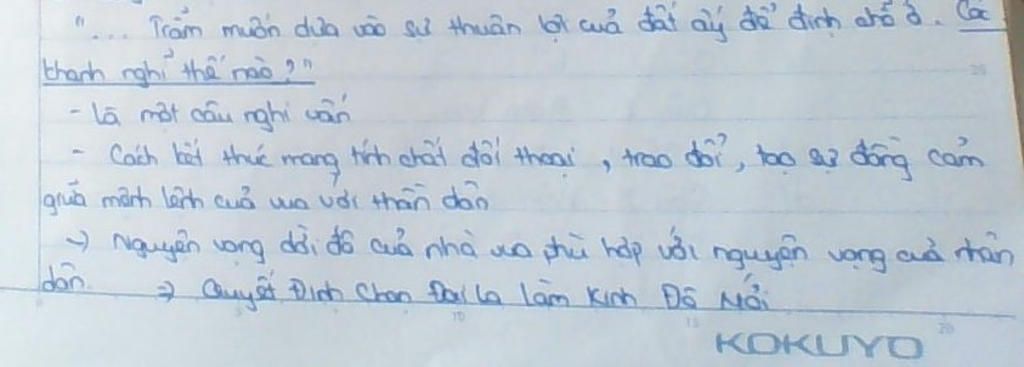 "... Trẫm muốn dựa vào sự thuận lợi của đất ấy để định chỗ ở. Các
khanh nghĩ thế nào?"
- Là một câu nghi vấn
- Cách kết thúc mang tính chất đối thoại, trao đổi, tạo sự đồng cảm
giữa mệnh lệnh của vua với thần dân
→ Nguyện vọng dời đô của nhà vua phù hợp với nguyện vọng của nhân
dân. ⇒ Quyết Định Chọn Đại La làm Kinh Đô Mới
KOKUYO